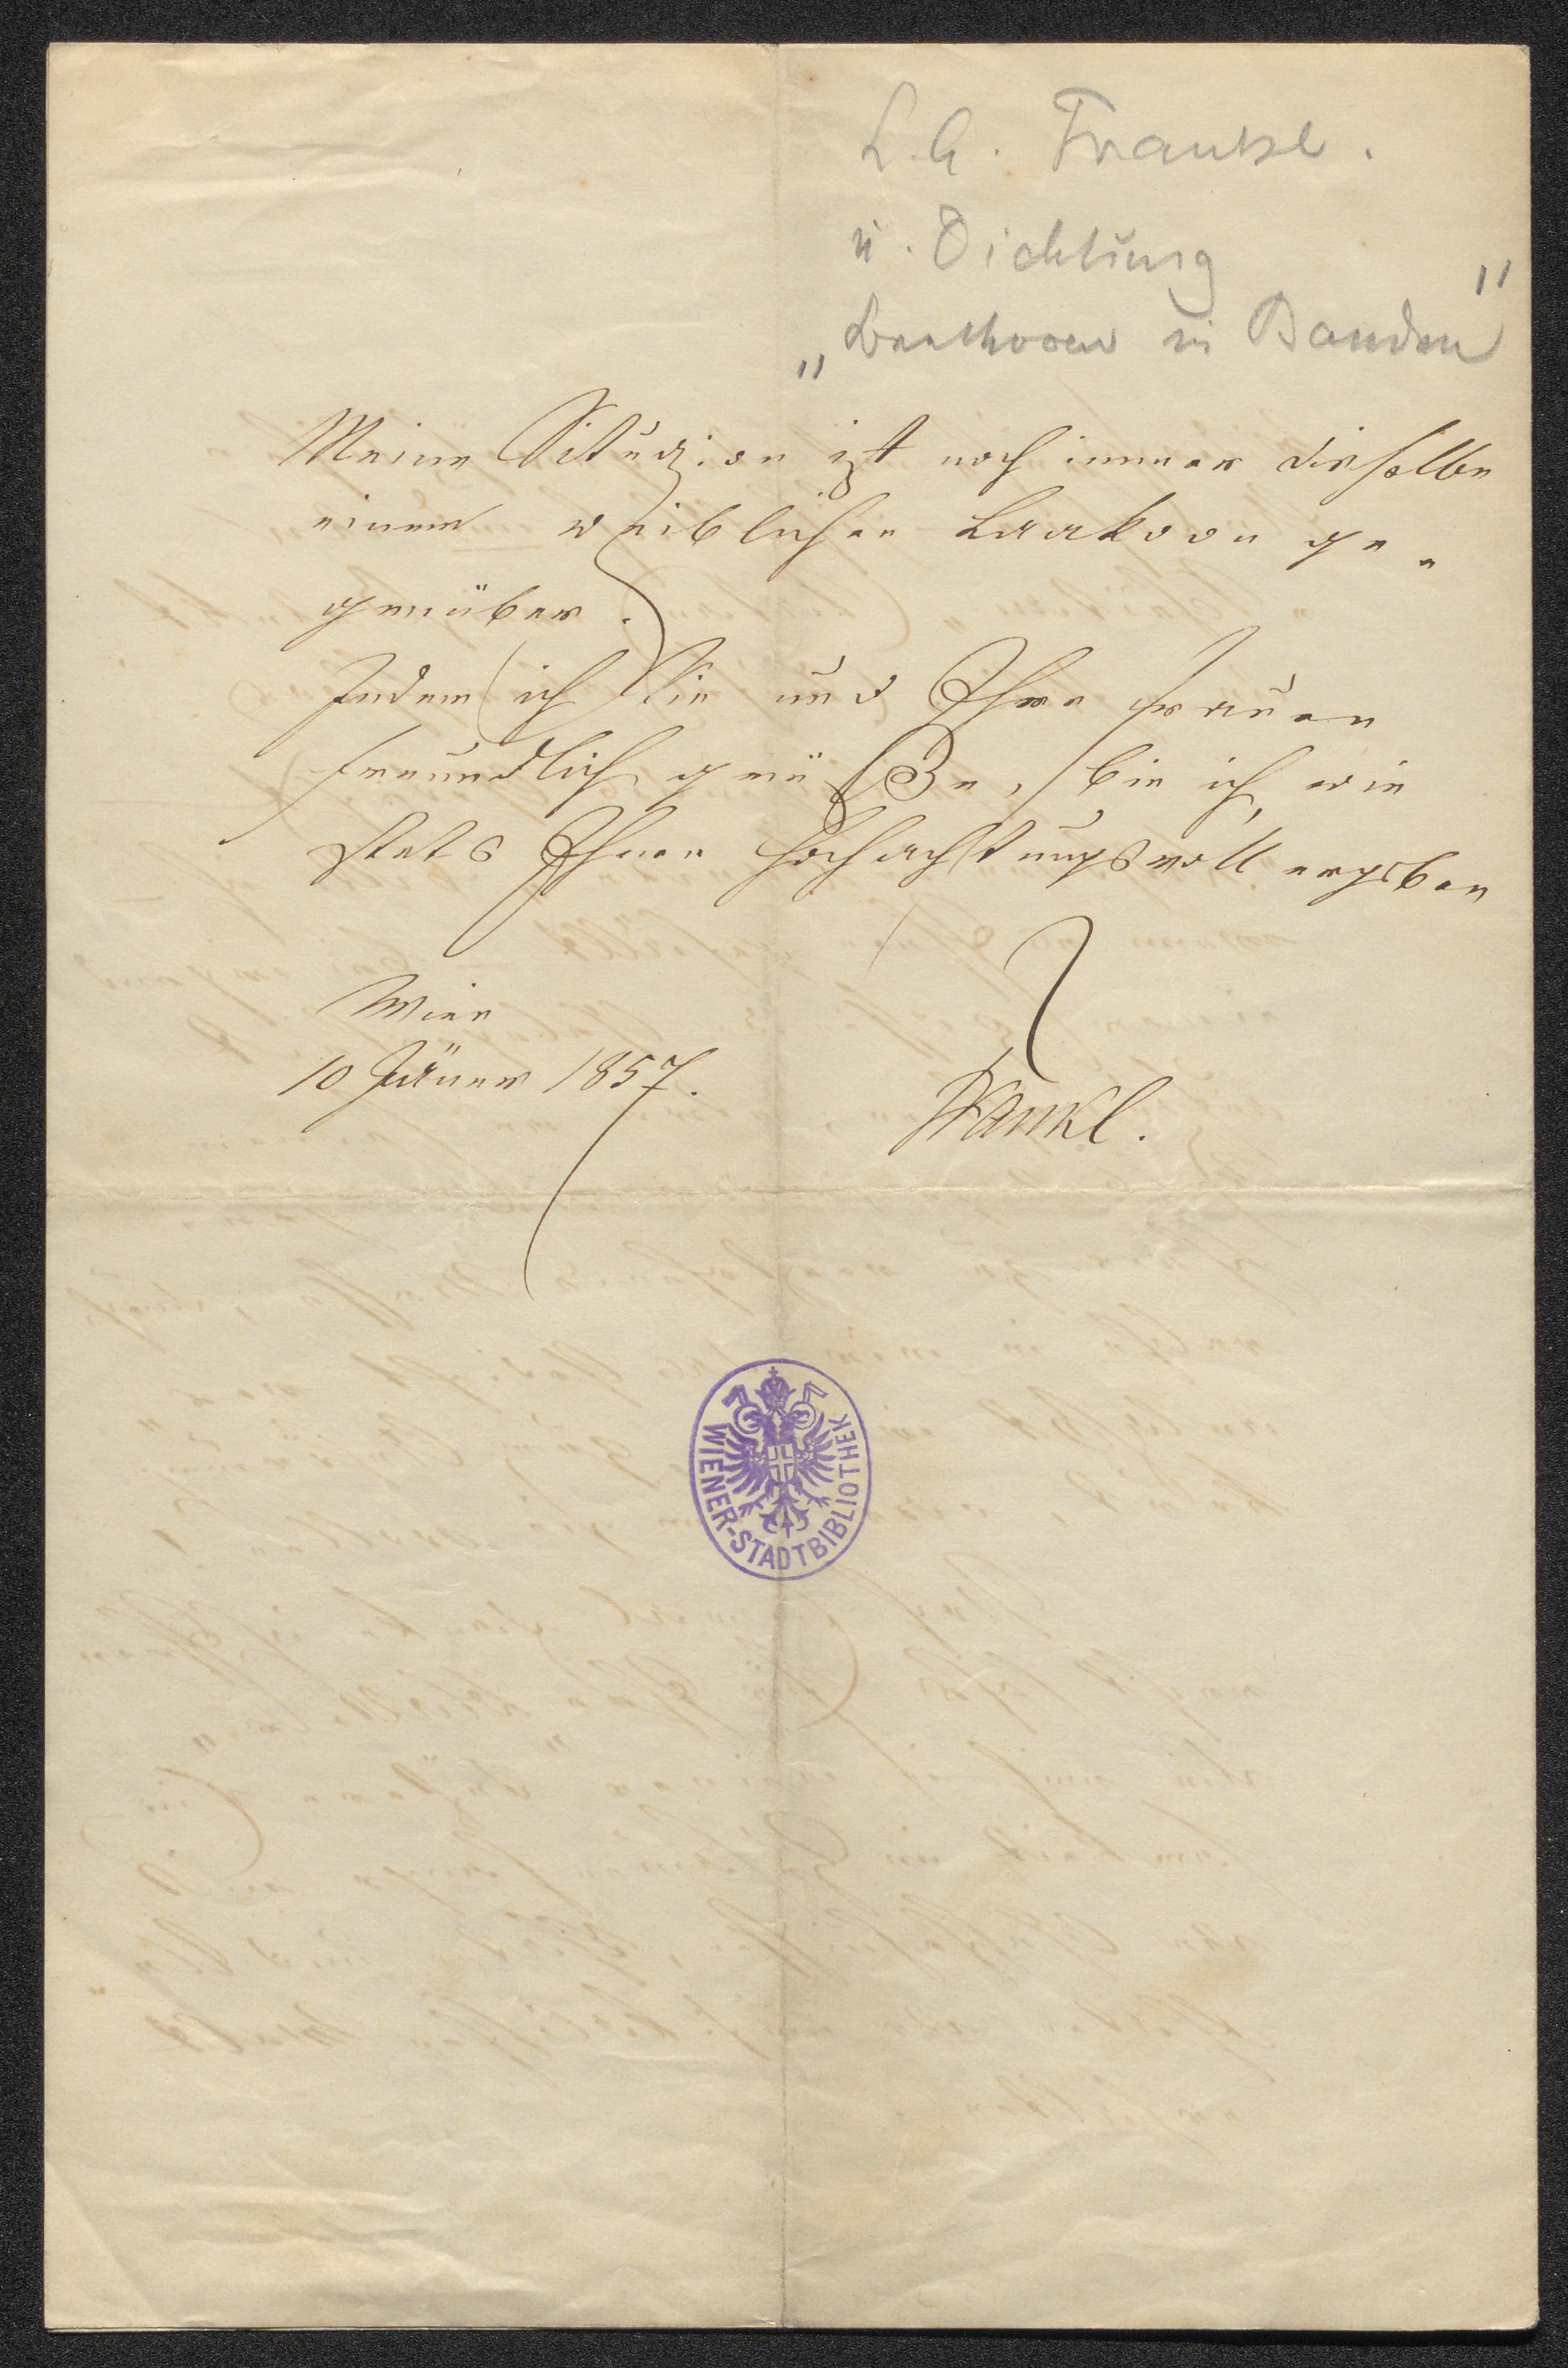 L. A. Frankl.
u. Dichtung
„Beethoven in Banden"
Meine Situazion ist noch immer dieselbe
einem weiblichen Laakoon ge-
genüber.
Indem ich Sie und Ihre Frauen
freundlich grüße, bin ich, wie
stets Ihnen hochachtungsvoll ergeben
Wien
10 Jäner 1857.
Frankl.
WIENER-STADTBIBLIOTHEK